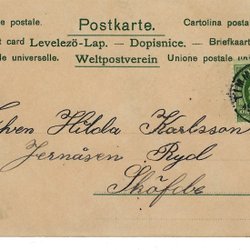 e postale. Postkarte. Cartolina posta
t card Levelezö-Lap. — Dopisnice. — Briefkaart
le universelle. Weltpostverein Unione postale un
Hilda Karlsson
Jernåsen Ryd